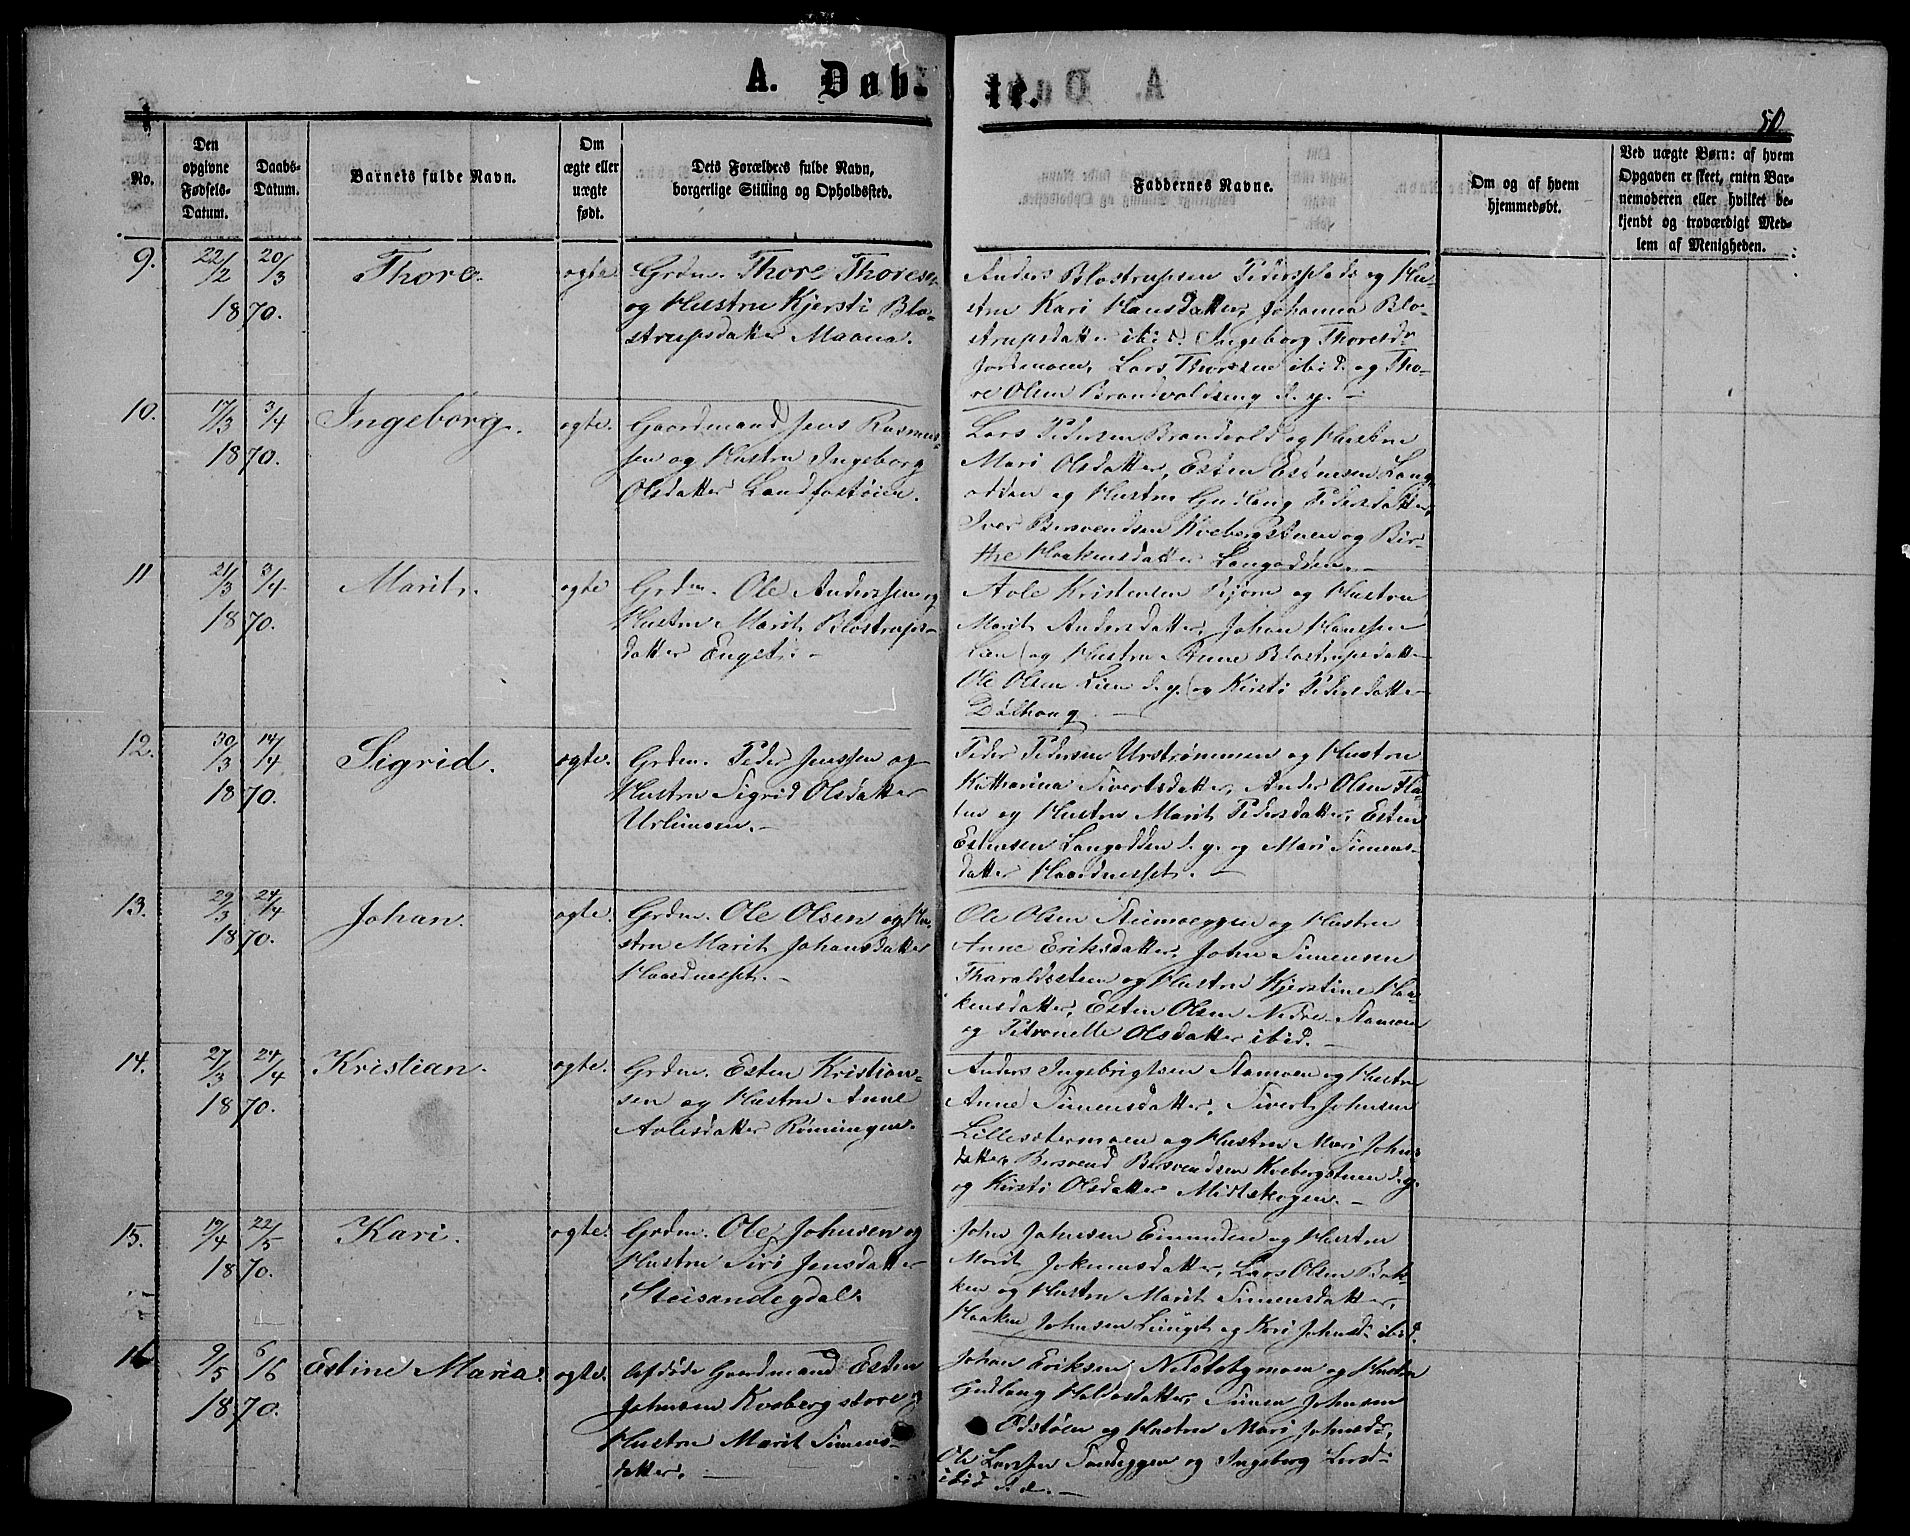 A. Døb-
te.
50
No.
Den
opgivne
Fødsels-
Datum.
Daabs-
Datum.
Barnets fulde Navn.
Om
ægte eller
uægte
født.
Dets Forældres fulde Navn,
borgerlige Stilling og Opholdssted.
Faddernes Navne.
Om og af hvem
hjemmedøbt.
Ved uægte Børn: af hvem
Opgaven er skeet, enten Bar-
nemoderen eller hvilket be-
kjendt og troværdigt Med-
lem af Menigheden.
9. 22/2 20/3 1870. Thore. ægte.
Grdm. Thore Thoresen
og Hustru Kjersti Blo-
strupsdatter Maana.
Anders Blostrupsen Pedersplads og Hu-
stru Kari Hansdatter, Johanna Blo-
strupsdatter ibid. Ingeborg Thoresdr
Jordmoen, Lars Thoresen ibid. og Tho-
re Olsen Brandvoldseng d. y. —
10. 17/3 3/4 1870. Ingeborg. ægte.
Gaardmand Jens Rasmus-
sen og Hustru Ingeborg
Olsdatter Landfastøien.
Lars Pedersen Brandvold og Hustru
Mari Olsdatter, Esten Estensen Lang-
odden og Hustru Gudlaug Pedersdatter,
Iver Bersvendsen Kvebergstuen og Bir-
the Haakensdatter Langodden. —
11 21/3 3/4 1870. Marit. ægte
Grdm. Ole Anderssen og
Hustru Marit Blostrups-
datter Enget. —
Avle Kristensen Bjørn og Hustru
Marit Andersdatter, Johan Hanssen
Lien og Hustru Anne Blostrupsdatter
Ole Olsen Lien d. y. og Kirsti Pedersdatter
Dølhaug. —
12. 30/3 14/4 1870. Sigrid. ægte.
Grdm. Peder Jenssen og
Hustru Sigrid Olsdatter
Urlimoen. —
Peder Pedersen Urstrømmen og Hustru
Katharina Sivertsdatter, Ander Olsen Fla-
ten og Hustru Marit Pedersdatter, Esten
Estensen Langodden d. y. og Mari Simens-
datter Haardnesset. —
13. 29/3 24/4 1870. Johan. ægte.
Grdm. Ole Olsen og Hu-
stru Marit Johansdatter
Haardnesset. —
Ole Olsen Steimoeggen og Hustru
Anne Eriksdatter, John Simensen
Tharaldsteen og Hustru Kjerstine Haa-
kensdatter, Esten Olsen Nedre Stamoen
og Petronelle Olsdatter ibid. —
14. 27/3 24/4 1870. Kristian. ægte.
Grdm. Esten Kristian-
sen og Hustru Anne
Avlesdatter Rønningen.
Anders Ingebrigtsen Stamoen og Hustru
Anne Simensdatter, Sivert Johnsen
Lillesætermoen og Hustru Mari Johns-
datter, Bersvend Bersvendsen Kvebergstuen d. y.
og Kirsti Olsdatter Midtskogen. —
15. 19/4 22/5 1870. Kari. ægte.
Grdm. Ole Johnsen og
Hustru Siri Jensdatter
Steisandegdal.
John Johnsen Einunden og Hustru
Marit Jokumsdatter, Lars Olsen Bak-
ken og Hustru Marit Simensdatter,
Haaken Johnsen Lunget og Kari Johnsdr ibid.
16 9/5 6/6 1870. Estine Maria. ægte.
Afdøde Gaardmand Esten
Johnsen Kveberg store og
Hustru Marit Simens-
datter. —
Johan Eriksen Nedstebymoen og Hustru
Gudlaug Haldosdatter, Simen Johnsen
Odstøen og Hustru Mari Johnsdr,
Ole Larssen Sandeggen og Ingeborg Larsd.
ibid.